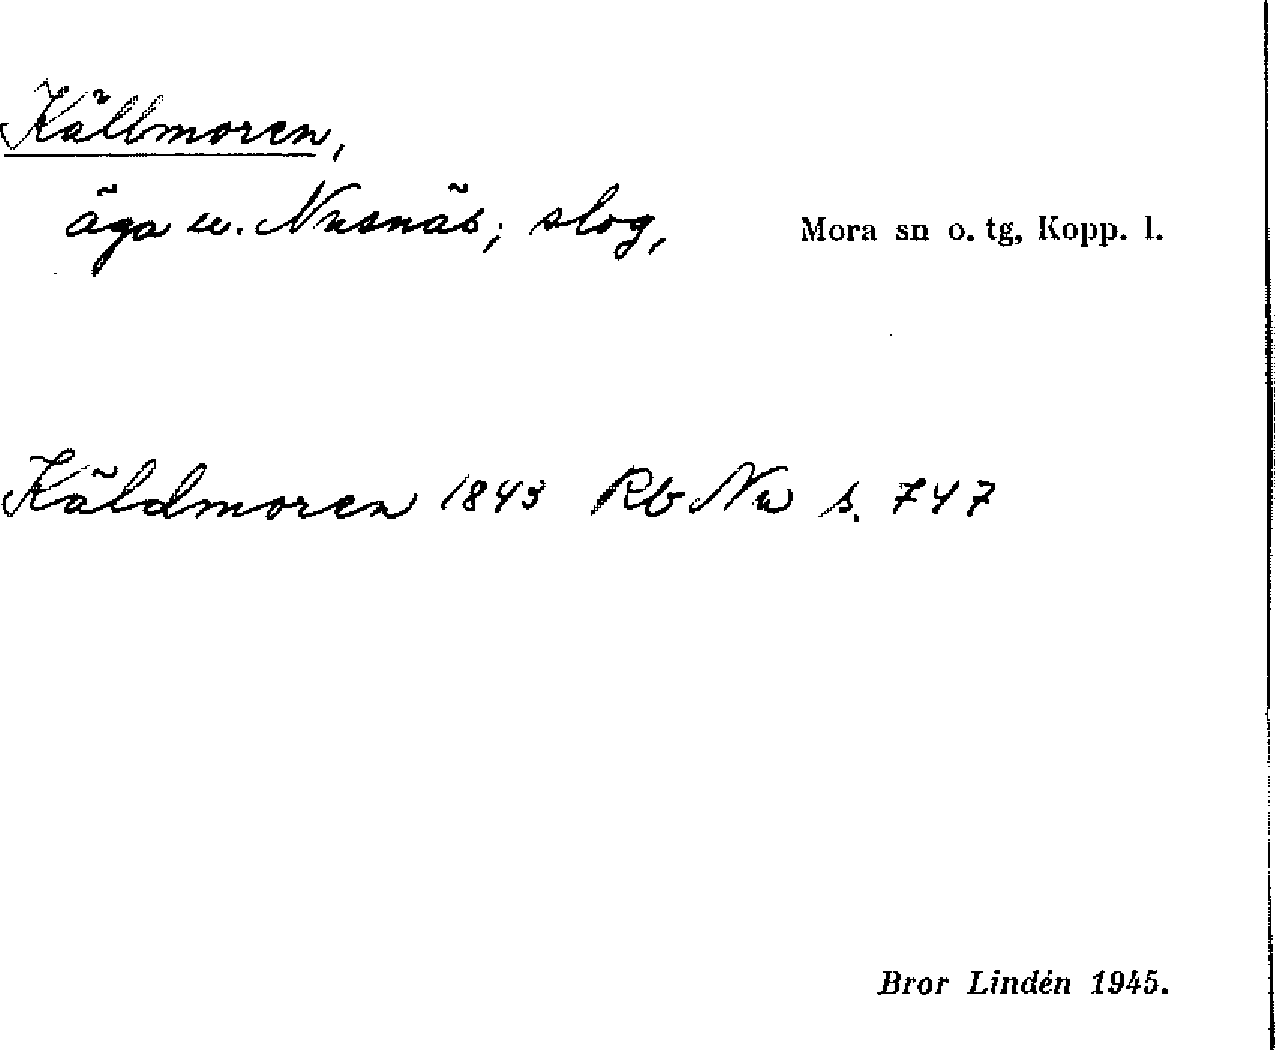 Källmoren,
äga u. Nusnäs; slog, Mora sn o. tg, Kopp. l.
Käldmoren 1843 Rb Nu s. 747
Bror Lindén 1945.